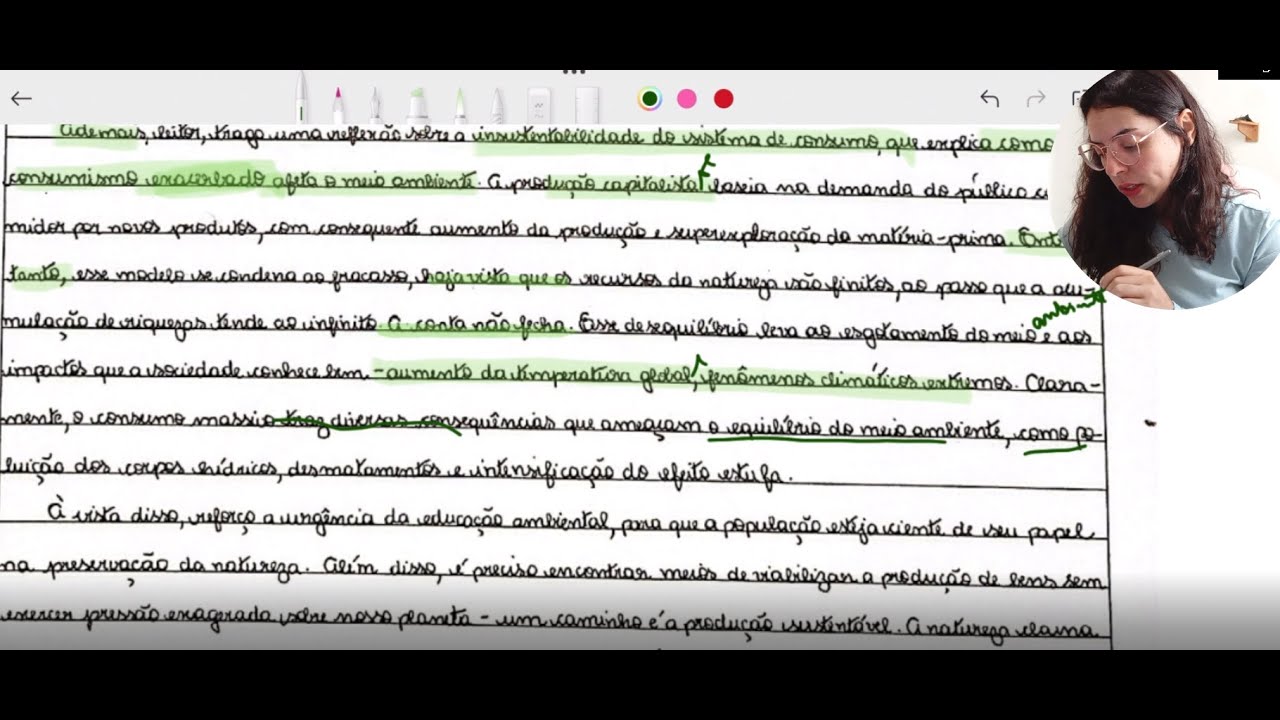 Ademais, leitor, trago uma reflexão sobre a insustentabilidade do sistema de consumo, que explica como
consumismo exacerbado afeta o meio ambiente. A produção capitalista baseia na demanda do público
midor por novos produtos, com consequente aumento da produção e superexploração da matéria-prima. Entre
tanto, esse modelo se condena ao fracasso, haja vista que os recursos da natureza são finitos, ao passo que a acu-
ambiente
mulação de riquezas tende ao infinito. A conta não fecha. Esse desequilíbrio leva ao esgotamento do meio e aos
impactos que a sociedade conhece bem - aumento da temperatura global, fenômenos climáticos extremos. Clara-
mente, o consumo massivo traz diversas consequências que ameaçam o equilíbrio do meio ambiente, como po-
luição dos corpos hídricos, desmatamentos e intensificação do efeito estufa.
À vista disso, reforço a urgência da educação ambiental, para que a população esteja ciente de seu papel
na preservação da natureza. Além disso, é preciso encontrar meios de viabilizar a produção de bens sem
exercer pressão exagerada sobre nosso planeta - um caminho é a produção sustentável. A natureza clama